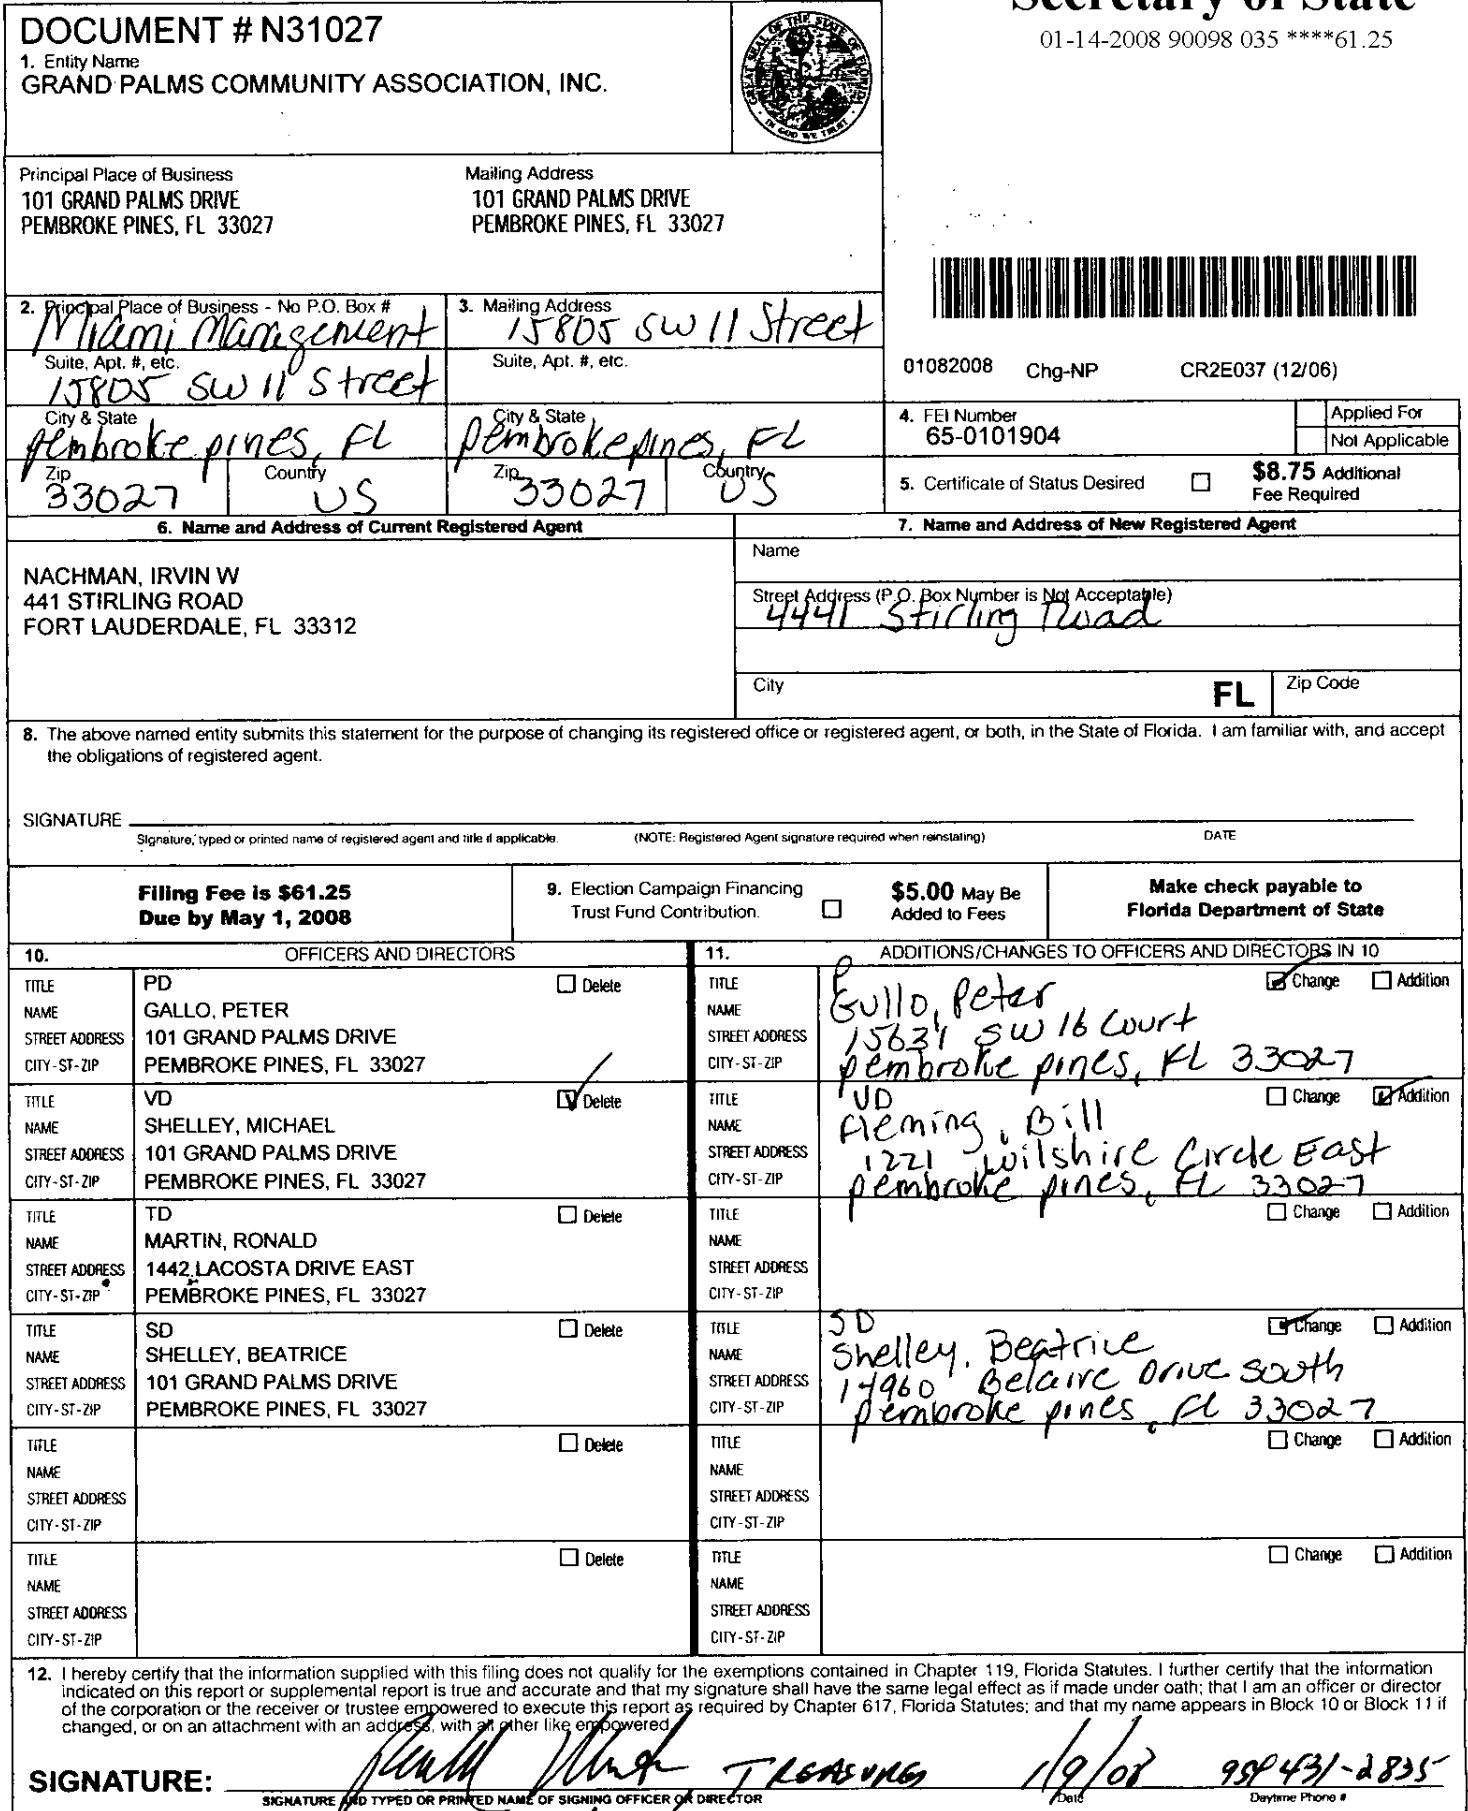 Secretary of State
01-14-2008 90098 035 ****61.25
DOCUMENT # N31027
1. Entity Name
GRAND PALMS COMMUNITY ASSOCIATION, INC.
GREAT SEAL OF THE STATE OF FLORIDA
IN GOD WE TRUST
Principal Place of Business
101 GRAND PALMS DRIVE
PEMBROKE PINES, FL 33027
Mailing Address
101 GRAND PALMS DRIVE
PEMBROKE PINES, FL 33027
2. Principal Place of Business - No P.O. Box #
Miami Management
Suite, Apt. #, etc.
15805 SW 11 Street
City & State
pembroke pines, FL
Zip
33027
Country
US
3. Mailing Address
15805 SW 11 Street
Suite, Apt. #, etc.
City & State
pembroke pines, FL
Zip
33027
Country
US
01082008 Chg-NP CR2E037 (12/06)
4. FEI Number
65-0101904
Applied For
Not Applicable
5. Certificate of Status Desired
$8.75 Additional
Fee Required
6. Name and Address of Current Registered Agent
NACHMAN, IRVIN W
441 STIRLING ROAD
FORT LAUDERDALE, FL 33312
7. Name and Address of New Registered Agent
Name
Street Address (P.O. Box Number is Not Acceptable)
4441 Stirling Road
City
FL
Zip Code
8. The above named entity submits this statement for the purpose of changing its registered office or registered agent, or both, in the State of Florida. I am familiar with, and accept
the obligations of registered agent.
SIGNATURE
Signature, typed or printed name of registered agent and title if applicable. (NOTE: Registered Agent signature required when reinstating) DATE
Filing Fee is $61.25
Due by May 1, 2008
9. Election Campaign Financing
Trust Fund Contribution.
$5.00 May Be
Added to Fees
Make check payable to
Florida Department of State
10. OFFICERS AND DIRECTORS
TITLE PD Delete
NAME GALLO, PETER
STREET ADDRESS 101 GRAND PALMS DRIVE
CITY-ST-ZIP PEMBROKE PINES, FL 33027
TITLE VD Delete
NAME SHELLEY, MICHAEL
STREET ADDRESS 101 GRAND PALMS DRIVE
CITY-ST-ZIP PEMBROKE PINES, FL 33027
TITLE TD Delete
NAME MARTIN, RONALD
STREET ADDRESS 1442 LACOSTA DRIVE EAST
CITY-ST-ZIP PEMBROKE PINES, FL 33027
TITLE SD Delete
NAME SHELLEY, BEATRICE
STREET ADDRESS 101 GRAND PALMS DRIVE
CITY-ST-ZIP PEMBROKE PINES, FL 33027
TITLE Delete
NAME
STREET ADDRESS
CITY-ST-ZIP
TITLE Delete
NAME
STREET ADDRESS
CITY-ST-ZIP
11. ADDITIONS/CHANGES TO OFFICERS AND DIRECTORS IN 10
TITLE P Change Addition
NAME Gullo, Peter
STREET ADDRESS SW 16 Court
CITY-ST-ZIP pembroke pines, FL 33027
TITLE VD Change Addition
NAME Fleming, Bill
STREET ADDRESS 1221 Wilshire Circle East
CITY-ST-ZIP pembroke pines, FL 33027
TITLE Change Addition
NAME
STREET ADDRESS
CITY-ST-ZIP
TITLE SD Change Addition
NAME Shelley, Beatrice
STREET ADDRESS 14960 Belaire Drive South
CITY-ST-ZIP pembroke pines, Fl 33027
TITLE Change Addition
NAME
STREET ADDRESS
CITY-ST-ZIP
TITLE Change Addition
NAME
STREET ADDRESS
CITY-ST-ZIP
12. I hereby certify that the information supplied with this filing does not qualify for the exemptions contained in Chapter 119, Florida Statutes. I further certify that the information
indicated on this report or supplemental report is true and accurate and that my signature shall have the same legal effect as if made under oath; that I am an officer or director
of the corporation or the receiver or trustee empowered to execute this report as required by Chapter 617, Florida Statutes; and that my name appears in Block 10 or Block 11 if
changed, or on an attachment with an address, with all other like empowered.
SIGNATURE: TREASURER 1/9/08 954 431-2835
SIGNATURE AND TYPED OR PRINTED NAME OF SIGNING OFFICER OR DIRECTOR Date Daytime Phone #